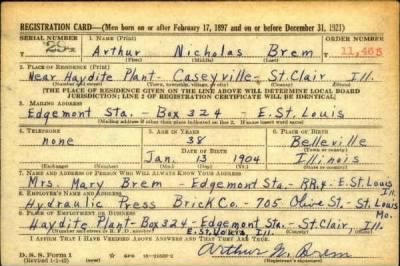 REGISTRATION CARD—(Men born on or after February 17, 1897 and on or before December 31, 1921)
SERIAL NUMBER 1. NAME (Print) ORDER NUMBER
Arthur Nicholas Brem 11,465
(First) (Middle) (Last)
2. PLACE OF RESIDENCE (Print)
Near Haydite Plant - Caseyville - St. Clair Ill.
(Number and street) (Town, township, village, or city) (County) (State)
[THE PLACE OF RESIDENCE GIVEN ON THE LINE ABOVE WILL DETERMINE LOCAL BOARD
JURISDICTION; LINE 2 OF REGISTRATION CERTIFICATE WILL BE IDENTICAL]
3. MAILING ADDRESS
Edgemont Sta. - Box 324 E. St. Louis
[Mailing address if other than place indicated on line 2. If same insert word same]
4. TELEPHONE 5. AGE IN YEARS 6. PLACE OF BIRTH
none 38 Belleville
DATE OF BIRTH (Town or county)
Jan. 13 1904 Illinois
(Exchange) (Number) (Mo.) (Day) (Yr.) (State or country)
7. NAME AND ADDRESS OF PERSON WHO WILL ALWAYS KNOW YOUR ADDRESS
Mrs. Mary Brem - Edgemont Sta. - RR.4 - E. St. Louis Ill.
8. EMPLOYER'S NAME AND ADDRESS
Hydraulic Press Brick Co. - 705 Olive St. - St. Louis Mo.
9. PLACE OF EMPLOYMENT OR BUSINESS
Haydite Plant - Box 324 - Edgemont Sta. - St. Clair Ill.
E. St. Louis Ill.
(Number and street or R. F. D. number) (Town) (County) (State)
I AFFIRM THAT I HAVE VERIFIED ABOVE ANSWERS AND THAT THEY ARE TRUE.
D. S. S. Form 1
(Revised 1-1-42) GPO
Arthur N. Brem
(Registrant's signature)